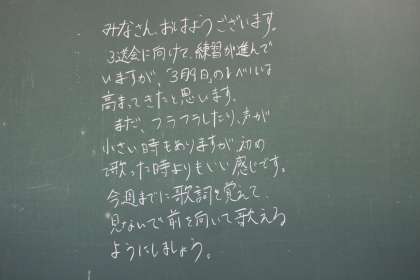 みなさん、おはようございます。
3送会に向けて、練習が進んで
いますが、「3月9日」のレベルは
高まってきたと思います。
まだ、フラフラしたり、声が
小さい時もありますが、初め
て歌った時よりもいい感じです。
今週までに歌詞を覚えて、
見ないで前を向いて歌える
ようにしましょう。